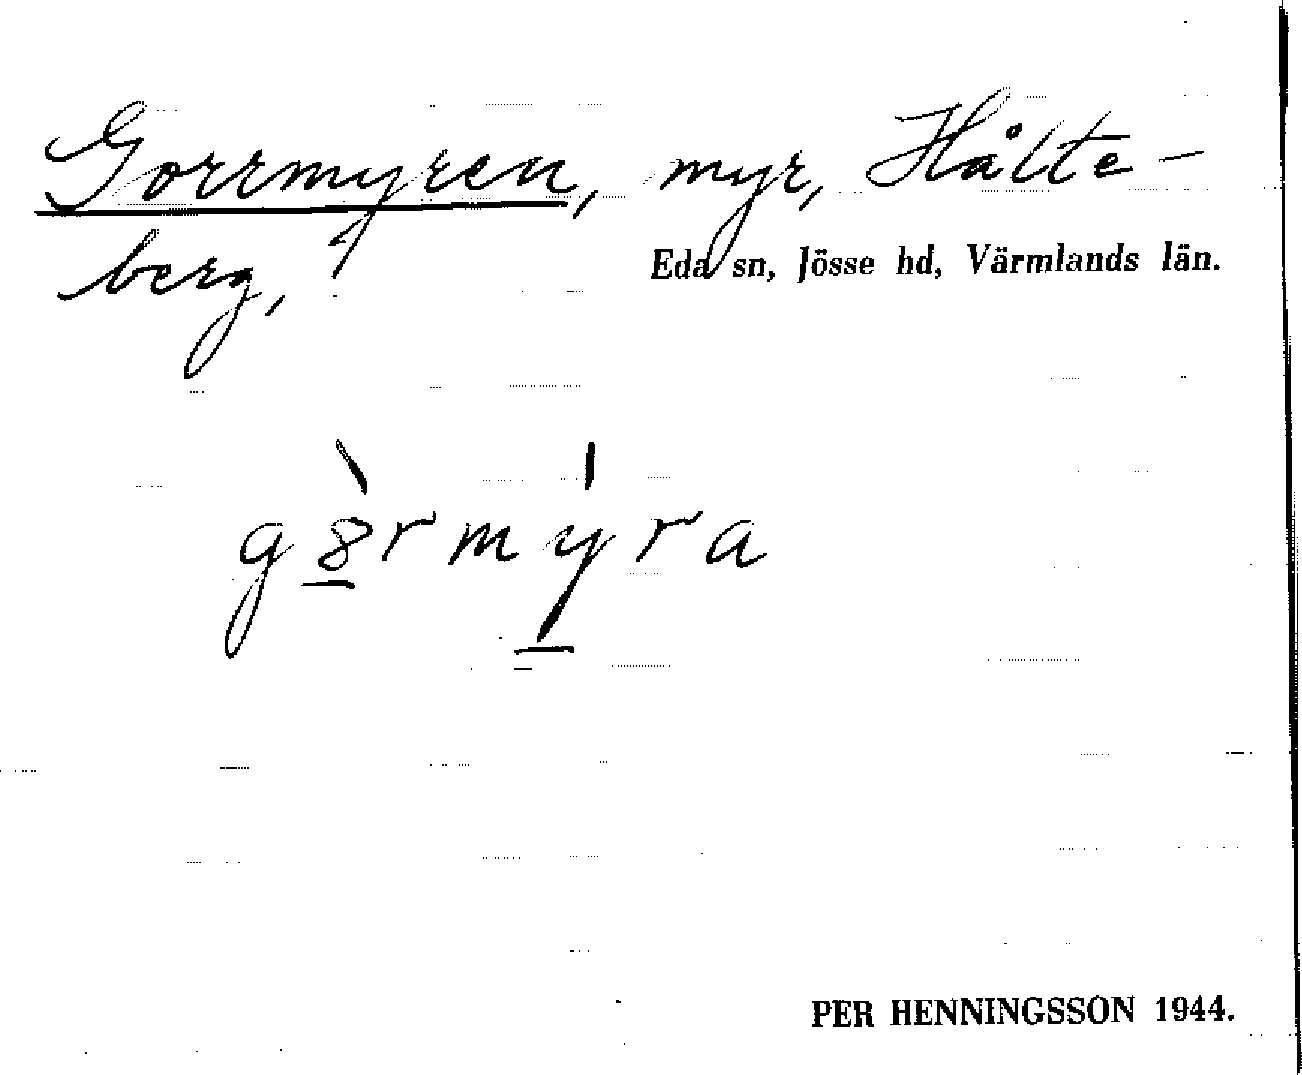 Gorrmyren, myr, Hålte-
berg, Eda sn, Jösse hd, Värmlands län.
g8rmyra
PER HENNINGSSON 1944.